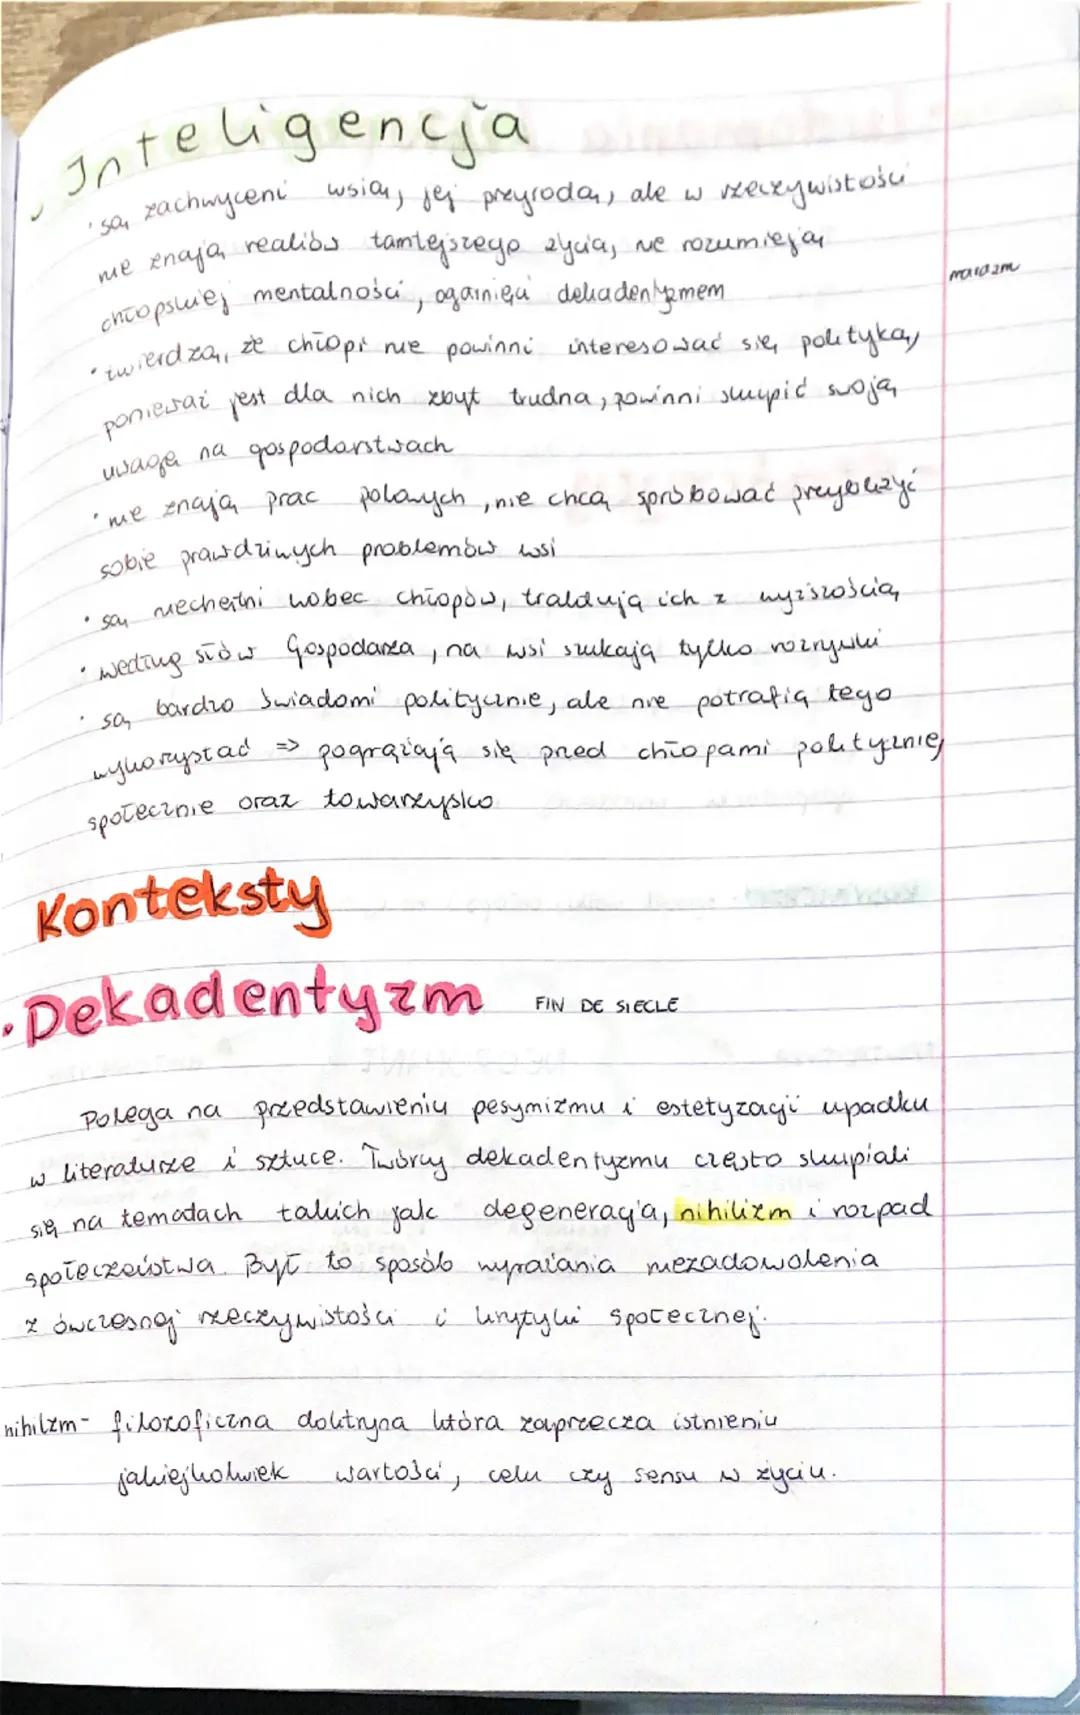 Inteligencja
• są zachwyceni wsią, jej przyrodą, ale w rzeczywistości
nie znają realiów tamtejszego życia, nie rozumieją
chłopskiej mentalności, ogarnięci dekadentyzmem
marazm
• twierdzą, że chłopi nie powinni interesować się polityką,
ponieważ jest dla nich zbyt trudna, powinni skupić swoją
uwagę na gospodarstwach
• nie znają prac polowych, nie chcą spróbować przybliżyć
sobie prawdziwych problemów wsi
• są niechętni wobec chłopów, traktują ich z wyższością
• według słów Gospodarza, na wsi szukają tylko rozrywki
• są bardzo świadomi politycznie, ale nie potrafią tego
wykorzystać => pogrążają się przed chłopami politycznie,
społecznie oraz towarzysko
Konteksty
• Dekadentyzm FIN DE SIECLE
Polega na przedstawieniu pesymizmu i estetyzacji upadku
w literaturze i sztuce. Twórcy dekadentyzmu często skupiali
się na tematach takich jak degeneracja, nihilizm i rozpad
społeczeństwa. Był to sposób wyrażania niezadowolenia
z ówczesnej rzeczywistości i krytyki społecznej.
nihilzm - filozoficzna doktryna która zaprzecza istnieniu
jakiejkolwiek wartości, celu czy sensu w życiu.